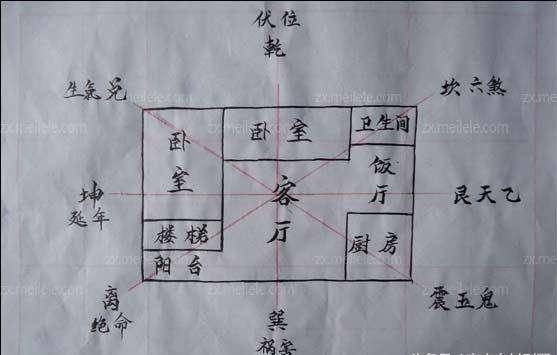 伏位
乾
生氣兑
坎六煞
卧室
卧室
卫生间
饭厅
坤
延年
客厅
艮天乙
楼梯
阳台
厨房
离
绝命
巽
祸害
震五鬼
zx.meilele.com
zx.meilele.com
zx.meilele.com
zx.meilele.com
zx.meilele.com
zx.meilele.com
zx.meilele.com